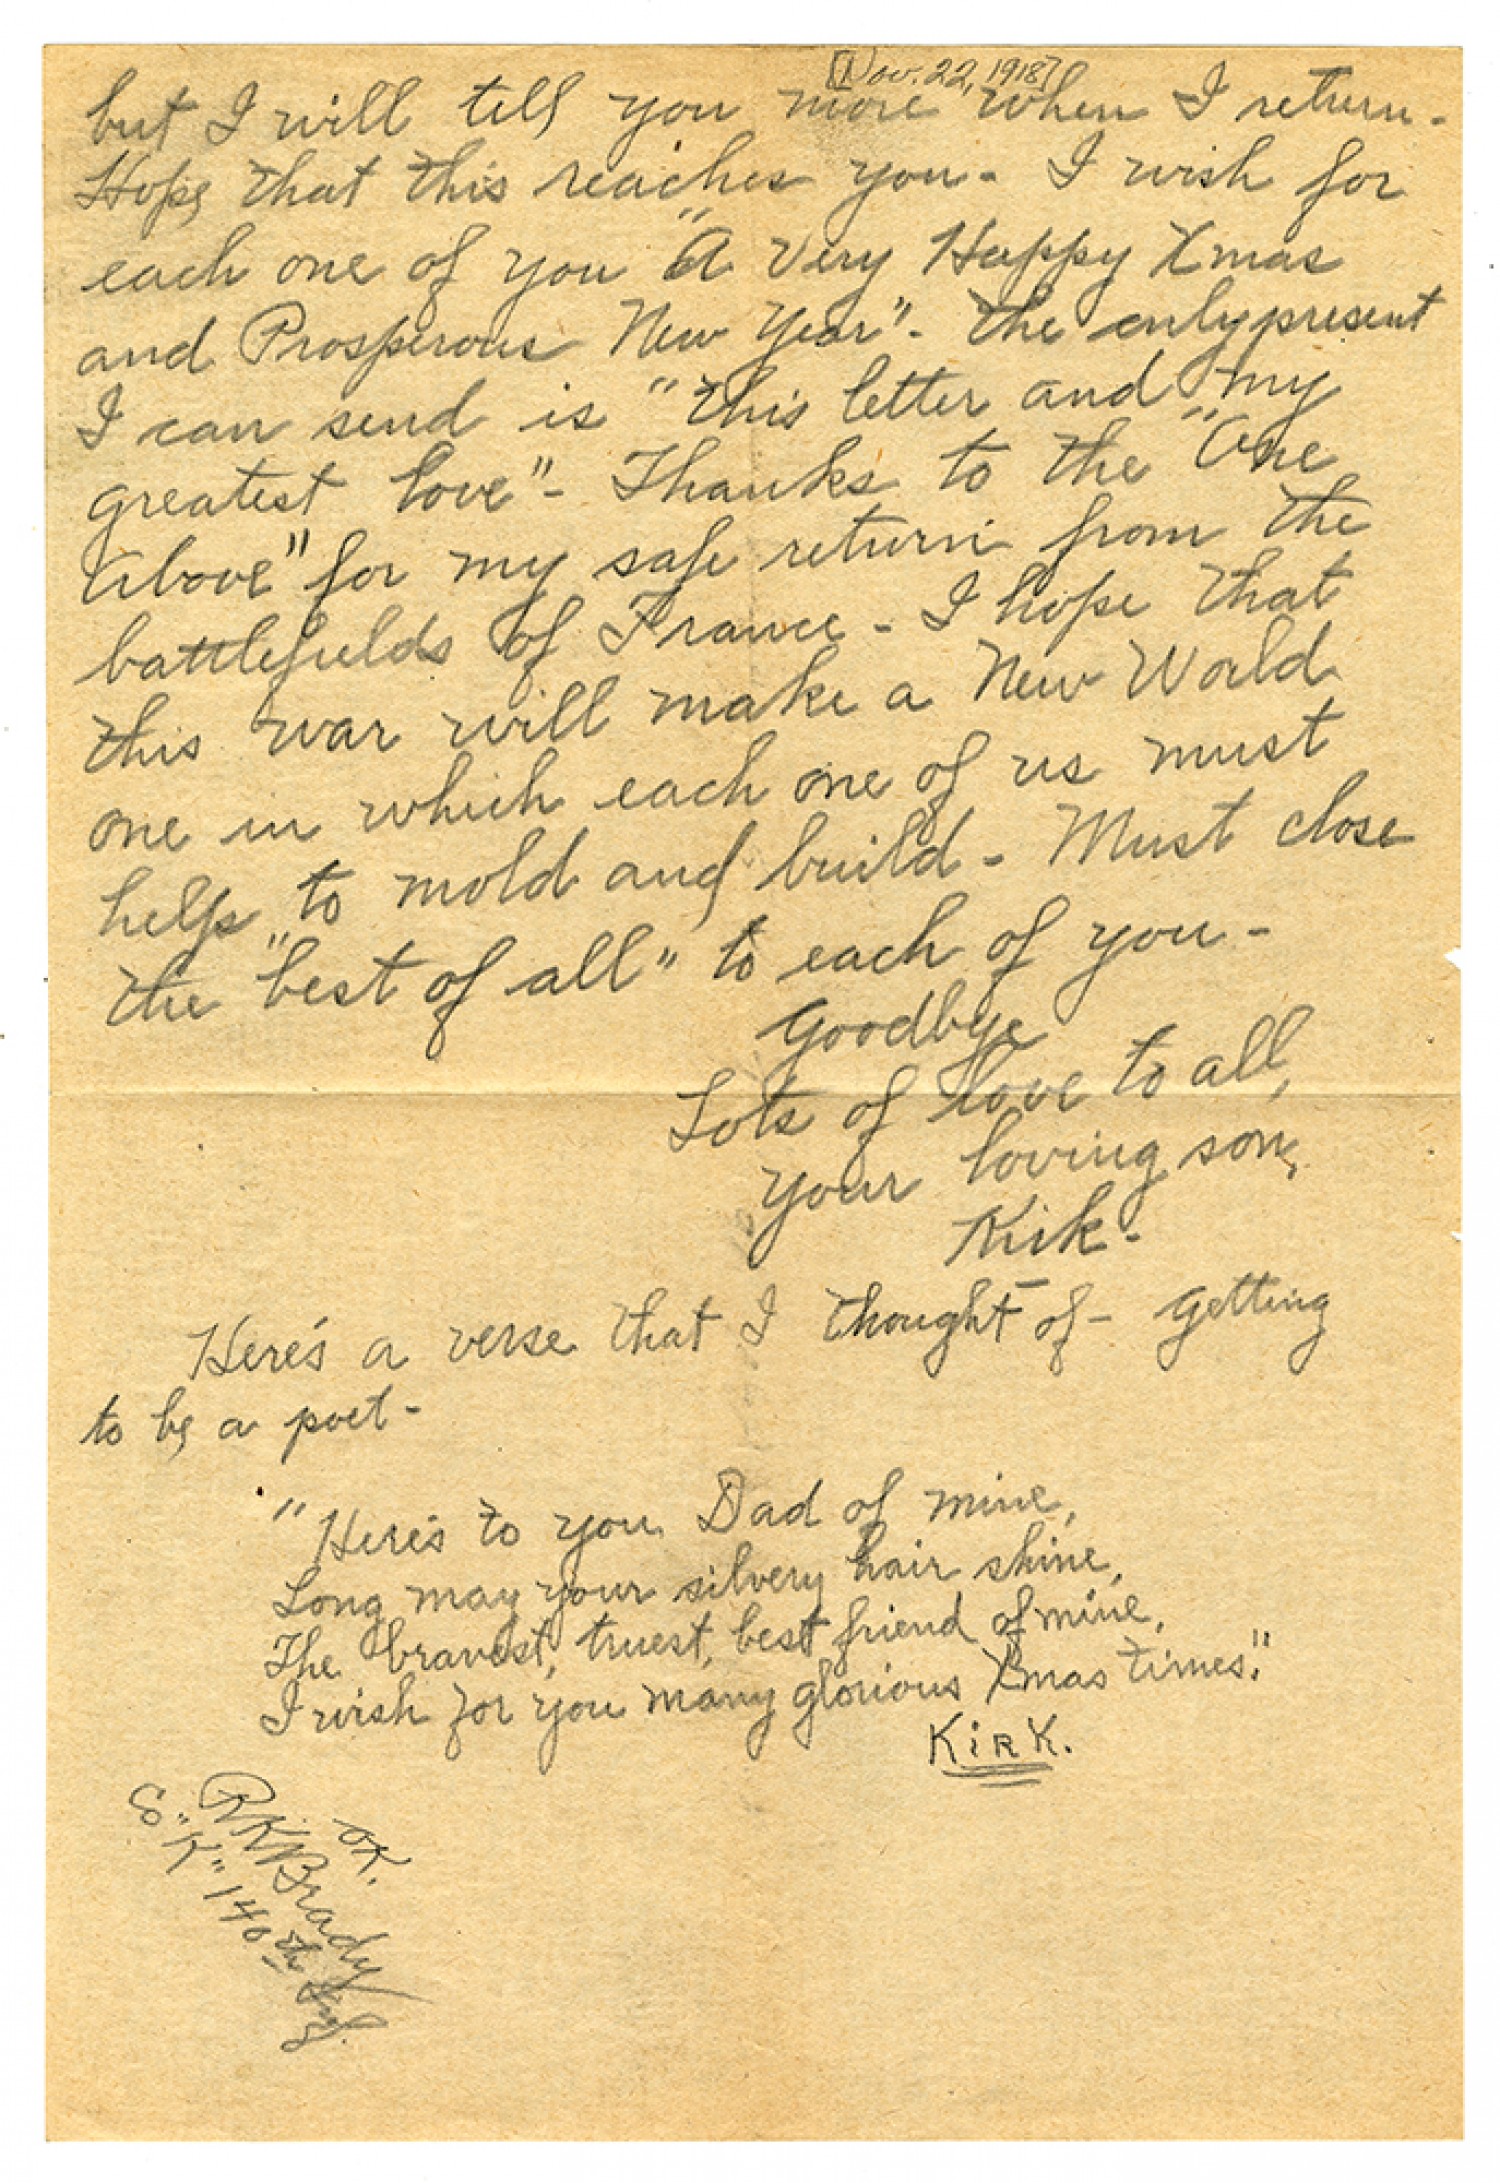 [Nov. 22, 1918]
but I will tell you more when I return -
Hope that this reaches you - I wish for
each one of you "A Very Happy Xmas
and Prosperous New Year" - The only present
I can send is "this letter and my
greatest love" - Thanks to the "One
Above" for my safe return from the
battlefields of France - I hope that
this war will make a New World
one in which each one of us must
help to mold and build - Must close
the "best of all" to each of you -
Goodbye
Lots of love to all,
Your loving son,
Kirk -
Here's a verse that I thought of - getting
to be a poet -
"Here's to you Dad of mine,
Long may your silvery hair shine,
The bravest, truest, best friend of mine,
I wish for you many glorious Xmas times."
KirK.
OK.
RKBrady
Co "K" 140th Inf.